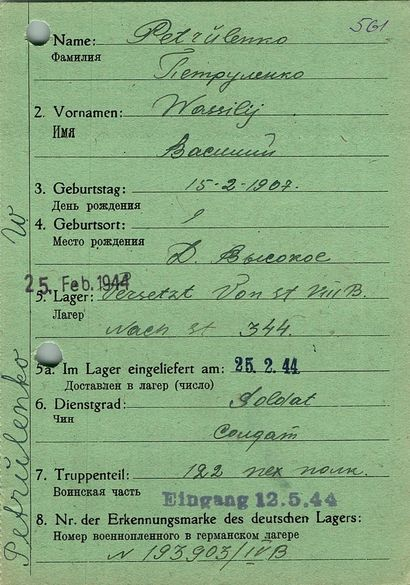 561
Name: Petrŭlenko
Фамилия
Петруленко
2. Vornamen: Wassilij
Имя
Василий
3. Geburtstag: 15-2-1907.
День рождения
4. Geburtsort:
Место рождения
Д. Высокое
25. Feb. 1944
5. Lager: Versetzt Von St VIII B.
Лагер
Nach St 344.
5a. Im Lager eingeliefert am: 25. 2. 44
Доставлен в лагер (число)
6. Dienstgrad: Soldat
Чин
Солдат
7. Truppenteil: 122 пех полк.
Воинская часть
Eingang 12.5.44
8. Nr. der Erkennungsmarke des deutschen Lagers:
Номер военнопленного в германском лагере
N 193903/IV B
Petrŭlenko W